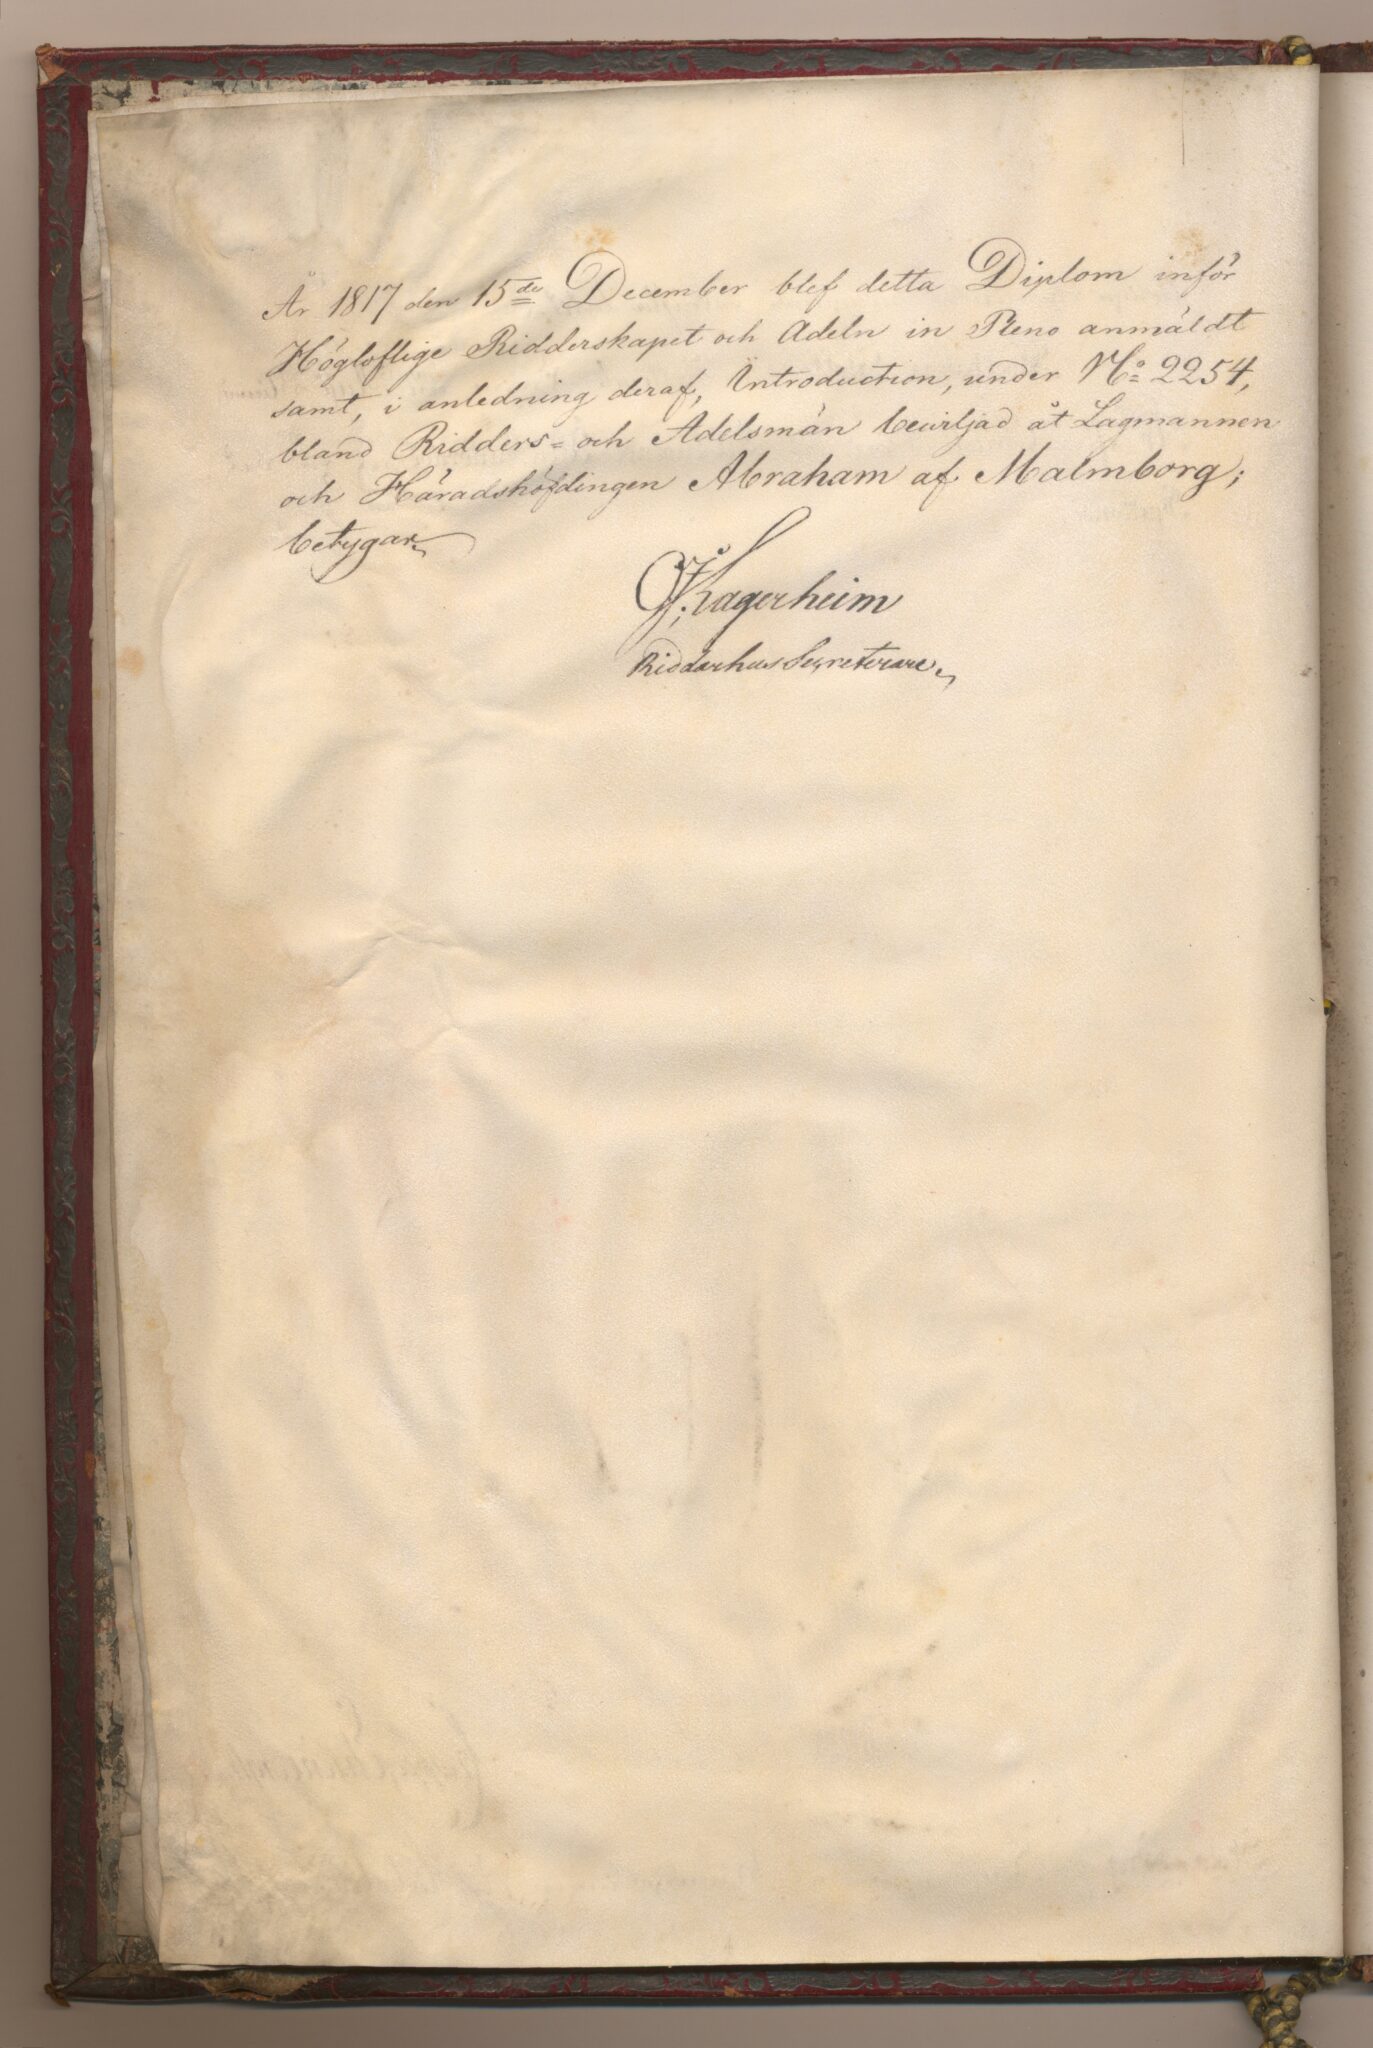 År 1817 den 15de December blef detta Diplom inför
Högloflige Ridderskapet och Adeln in Pleno anmäldt
samt, i anledning deraf, Introduction, under No 2254,
bland Ridders- och Adelsmän beviljad åt Lagmannen
och Häradshöfdingen Abraham af Malmborg;
betygar
Lagerheim
Riddarhus Secreterare